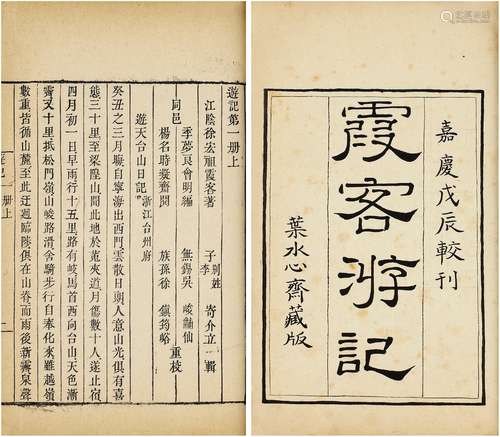 嘉慶戊辰較刊
霞客游記
葉水心齋藏版
遊記第一册上
江陰徐宏祖霞客著 子李別姓寄介立輯
同邑
季夢良會明編 無錫吳 峻黼仙
楊名時凝齋閱 族孫徐 鎮筠峪
重校
遊天台山日記 浙江台州府
癸丑之三月晦自寧海出西門雲散日朗人意山光俱有喜
態三十里至梁隍山聞此地於菟夾道月傷數十人遂止宿
四月初一日早雨行十五里路有岐馬首西向台山天色漸
霽又十里抵松門嶺山峻路滑舍騎步行自奉化來雖越嶺
數重皆循山麓至此迂迴臨陟俱在山脊而雨後新霽泉聲